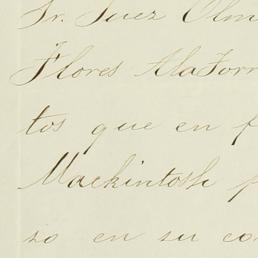 Sr. Juez Olm
Flores Alatorr
tos que en f
Mackintosh p
so en su co